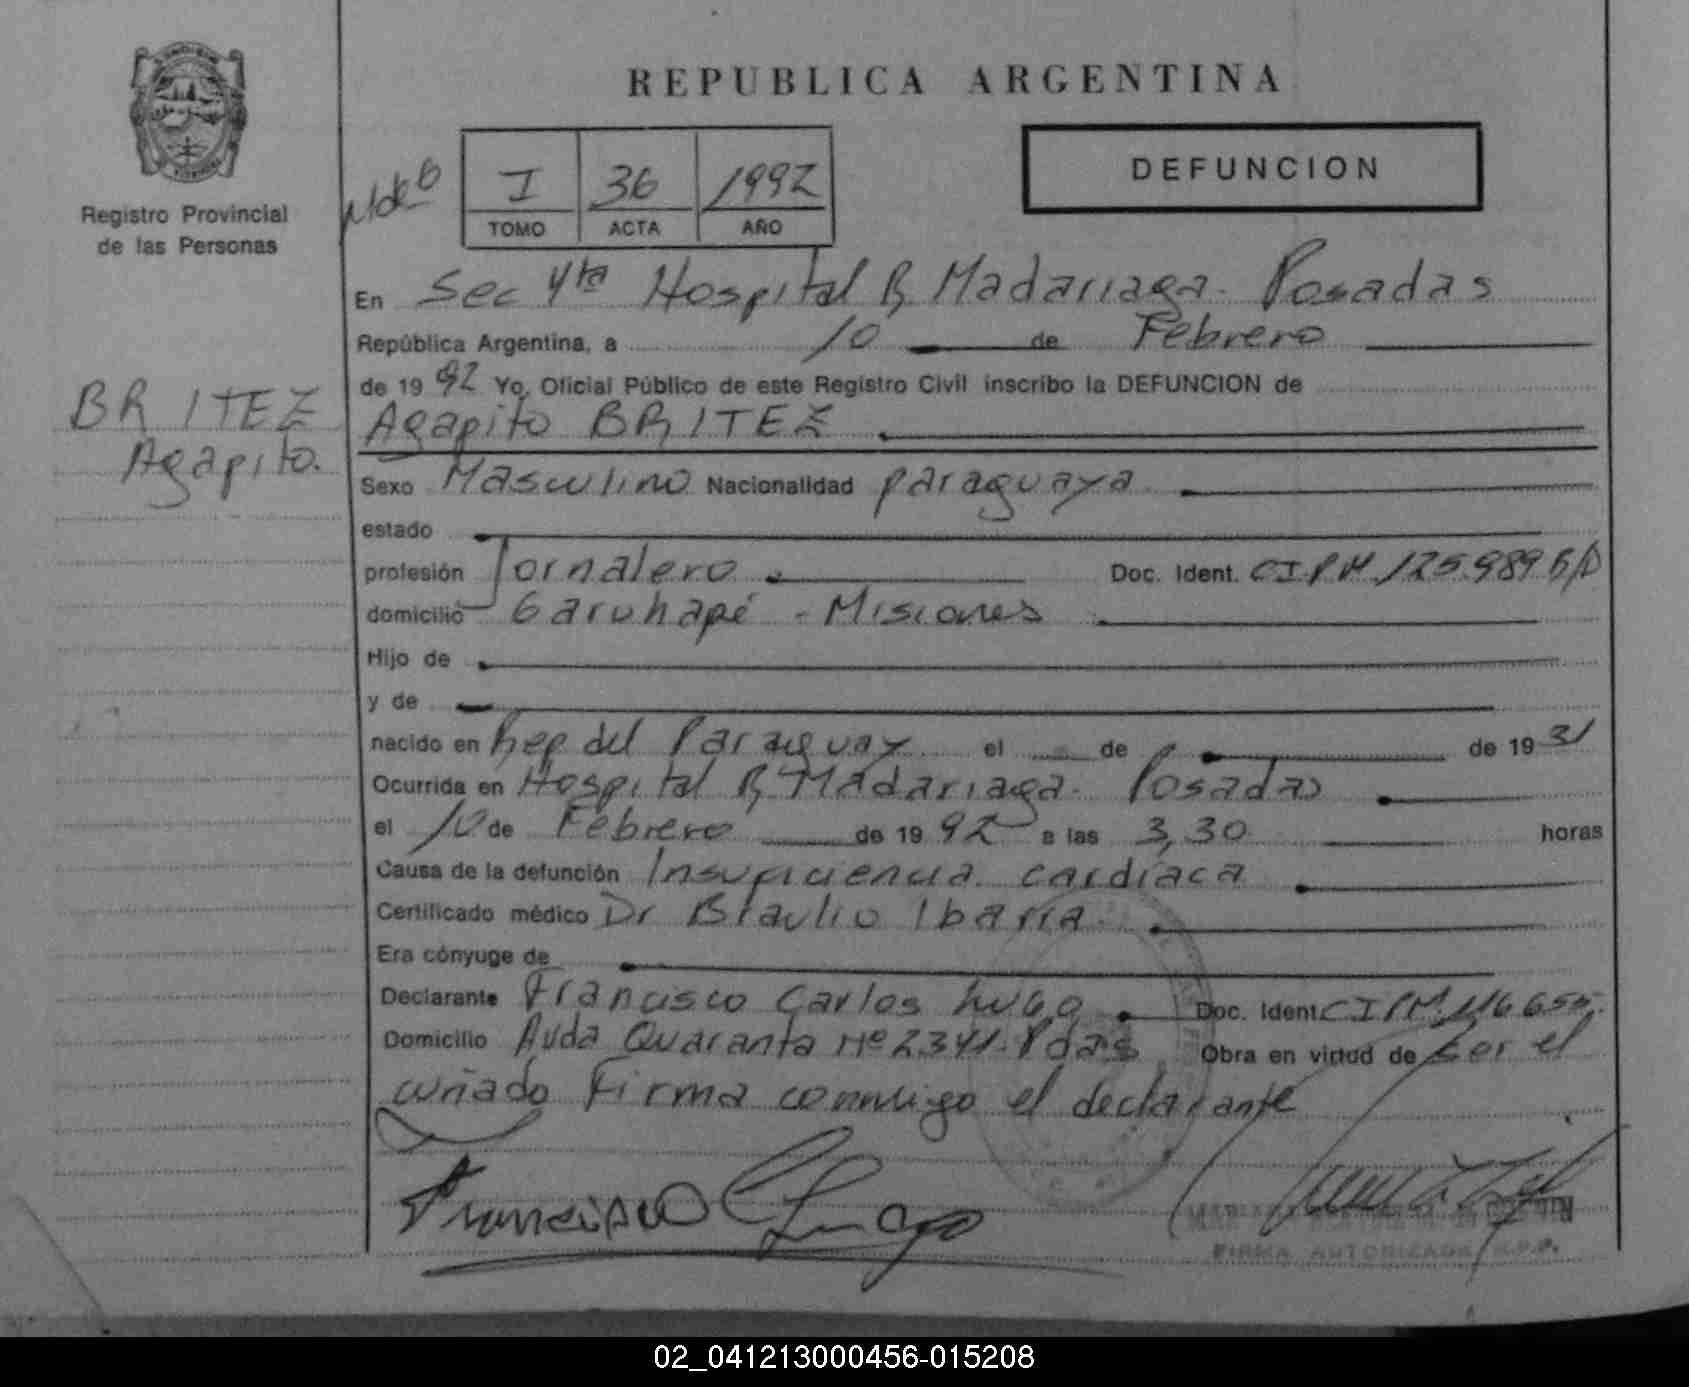 REPUBLICA ARGENTINA
Registro Provincial
de las Personas
I 36 1992
TOMO ACTA AÑO
DEFUNCION
BRITEZ
Agapito.
En Sec 4ta Hospital R, Madariaga. Posadas
República Argentina, a 10 de Febrero
de 1992 Yo, Oficial Público de este Registro Civil inscribo la DEFUNCION de
Agapito BRITEZ
Sexo Masculino Nacionalidad paraguaya
estado
profesión Jornalero Doc. Ident. C.I.P.M. 125.989 S/D
domicilio Garuhapé - Misiones
Hijo de
y de
nacido en Rep del Paraguay el de de 1931
Ocurrida en Hospital R, Madariaga. Posadas
el 10 de Febrero de 1992 a las 3,30 horas
Causa de la defunción Insuficiencia cardiaca
Certificado médico Dr Braulio Ibarra
Era cónyuge de
Declarante Francisco Carlos Lugo Doc. Ident. C I PM. 116655.
Domicilio Avda Quaranta Nº 2341. Pdas Obra en virtud de ser el
cuñado Firma conmigo el declarante
Francisco C Lugo
FIRMA AUTORIZADA R.P.P.
02_041213000456-015208